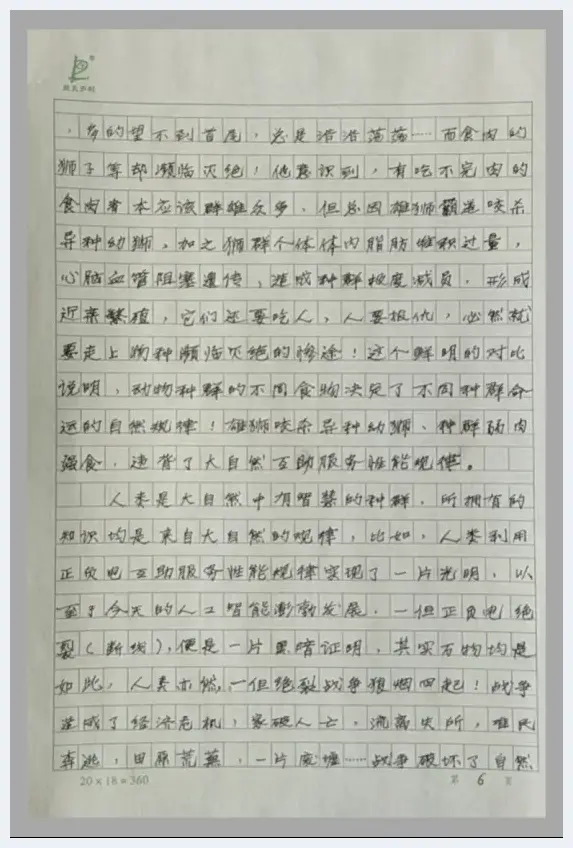 ，多的望不到首尾，总是浩浩荡荡……而食肉的
狮子等却濒临灭绝！他意识到，有吃不完肉的
食肉者本应该群雄众多，但总因雄狮霸道咬杀
异种幼狮，加之狮群个体体内脂肪堆积过量，
心脑血管阻塞遗传，造成种群极度减员，形成
近亲繁殖，它们还要吃人，人要报仇，必然就
要走上物种濒临灭绝的惨途！这个鲜明的对比
说明，动物种群的不同食物决定了不同种群命
运的自然规律！雄狮咬杀异种幼狮、种群弱肉
强食，违背了大自然互助服务性能规律。
人类是大自然中有智慧的种群，所拥有的
知识均是来自大自然的规律，比如，人类利用
正负电互助服务性能规律实现了一片光明，以
至于今天的人工智能澎勃发展，一但正负电绝
裂（断线），便是一片黑暗证明，其实万物均是
如此，人类亦然，一但绝裂战争狼烟四起！战争
造成了经济危机，家破人亡，流离失所，难民
奔逃，田原荒芜，一片废墟……战争破坏了自然
20×18=360 第 6 页